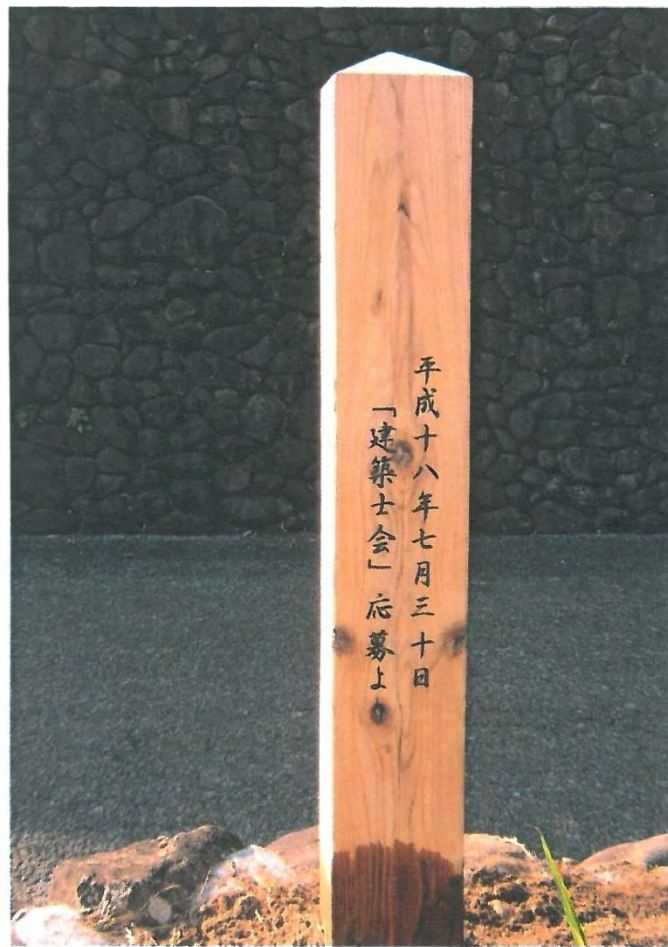 平成十八年七月三十日
「建築士会」応募よ